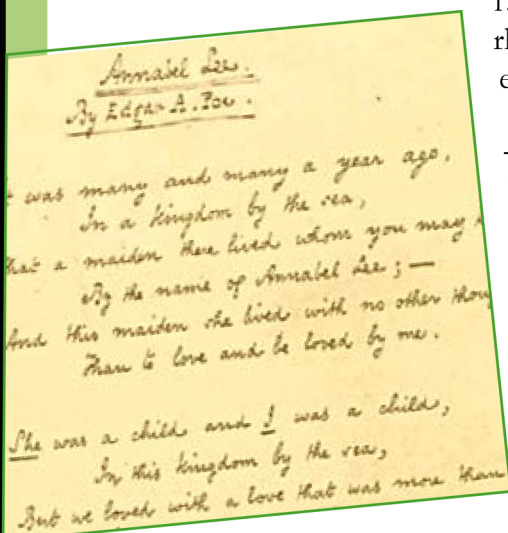 Annabel Lee.
By Edgar A. Poe.
t was many and many a year ago,
In a kingdom by the sea,
hat a maiden there lived whom you may
By the name of Annabel Lee; —
And this maiden she lived with no other thou
Than to love and be loved by me.
She was a child and I was a child,
In this kingdom by the sea,
But we loved with a love that was more than